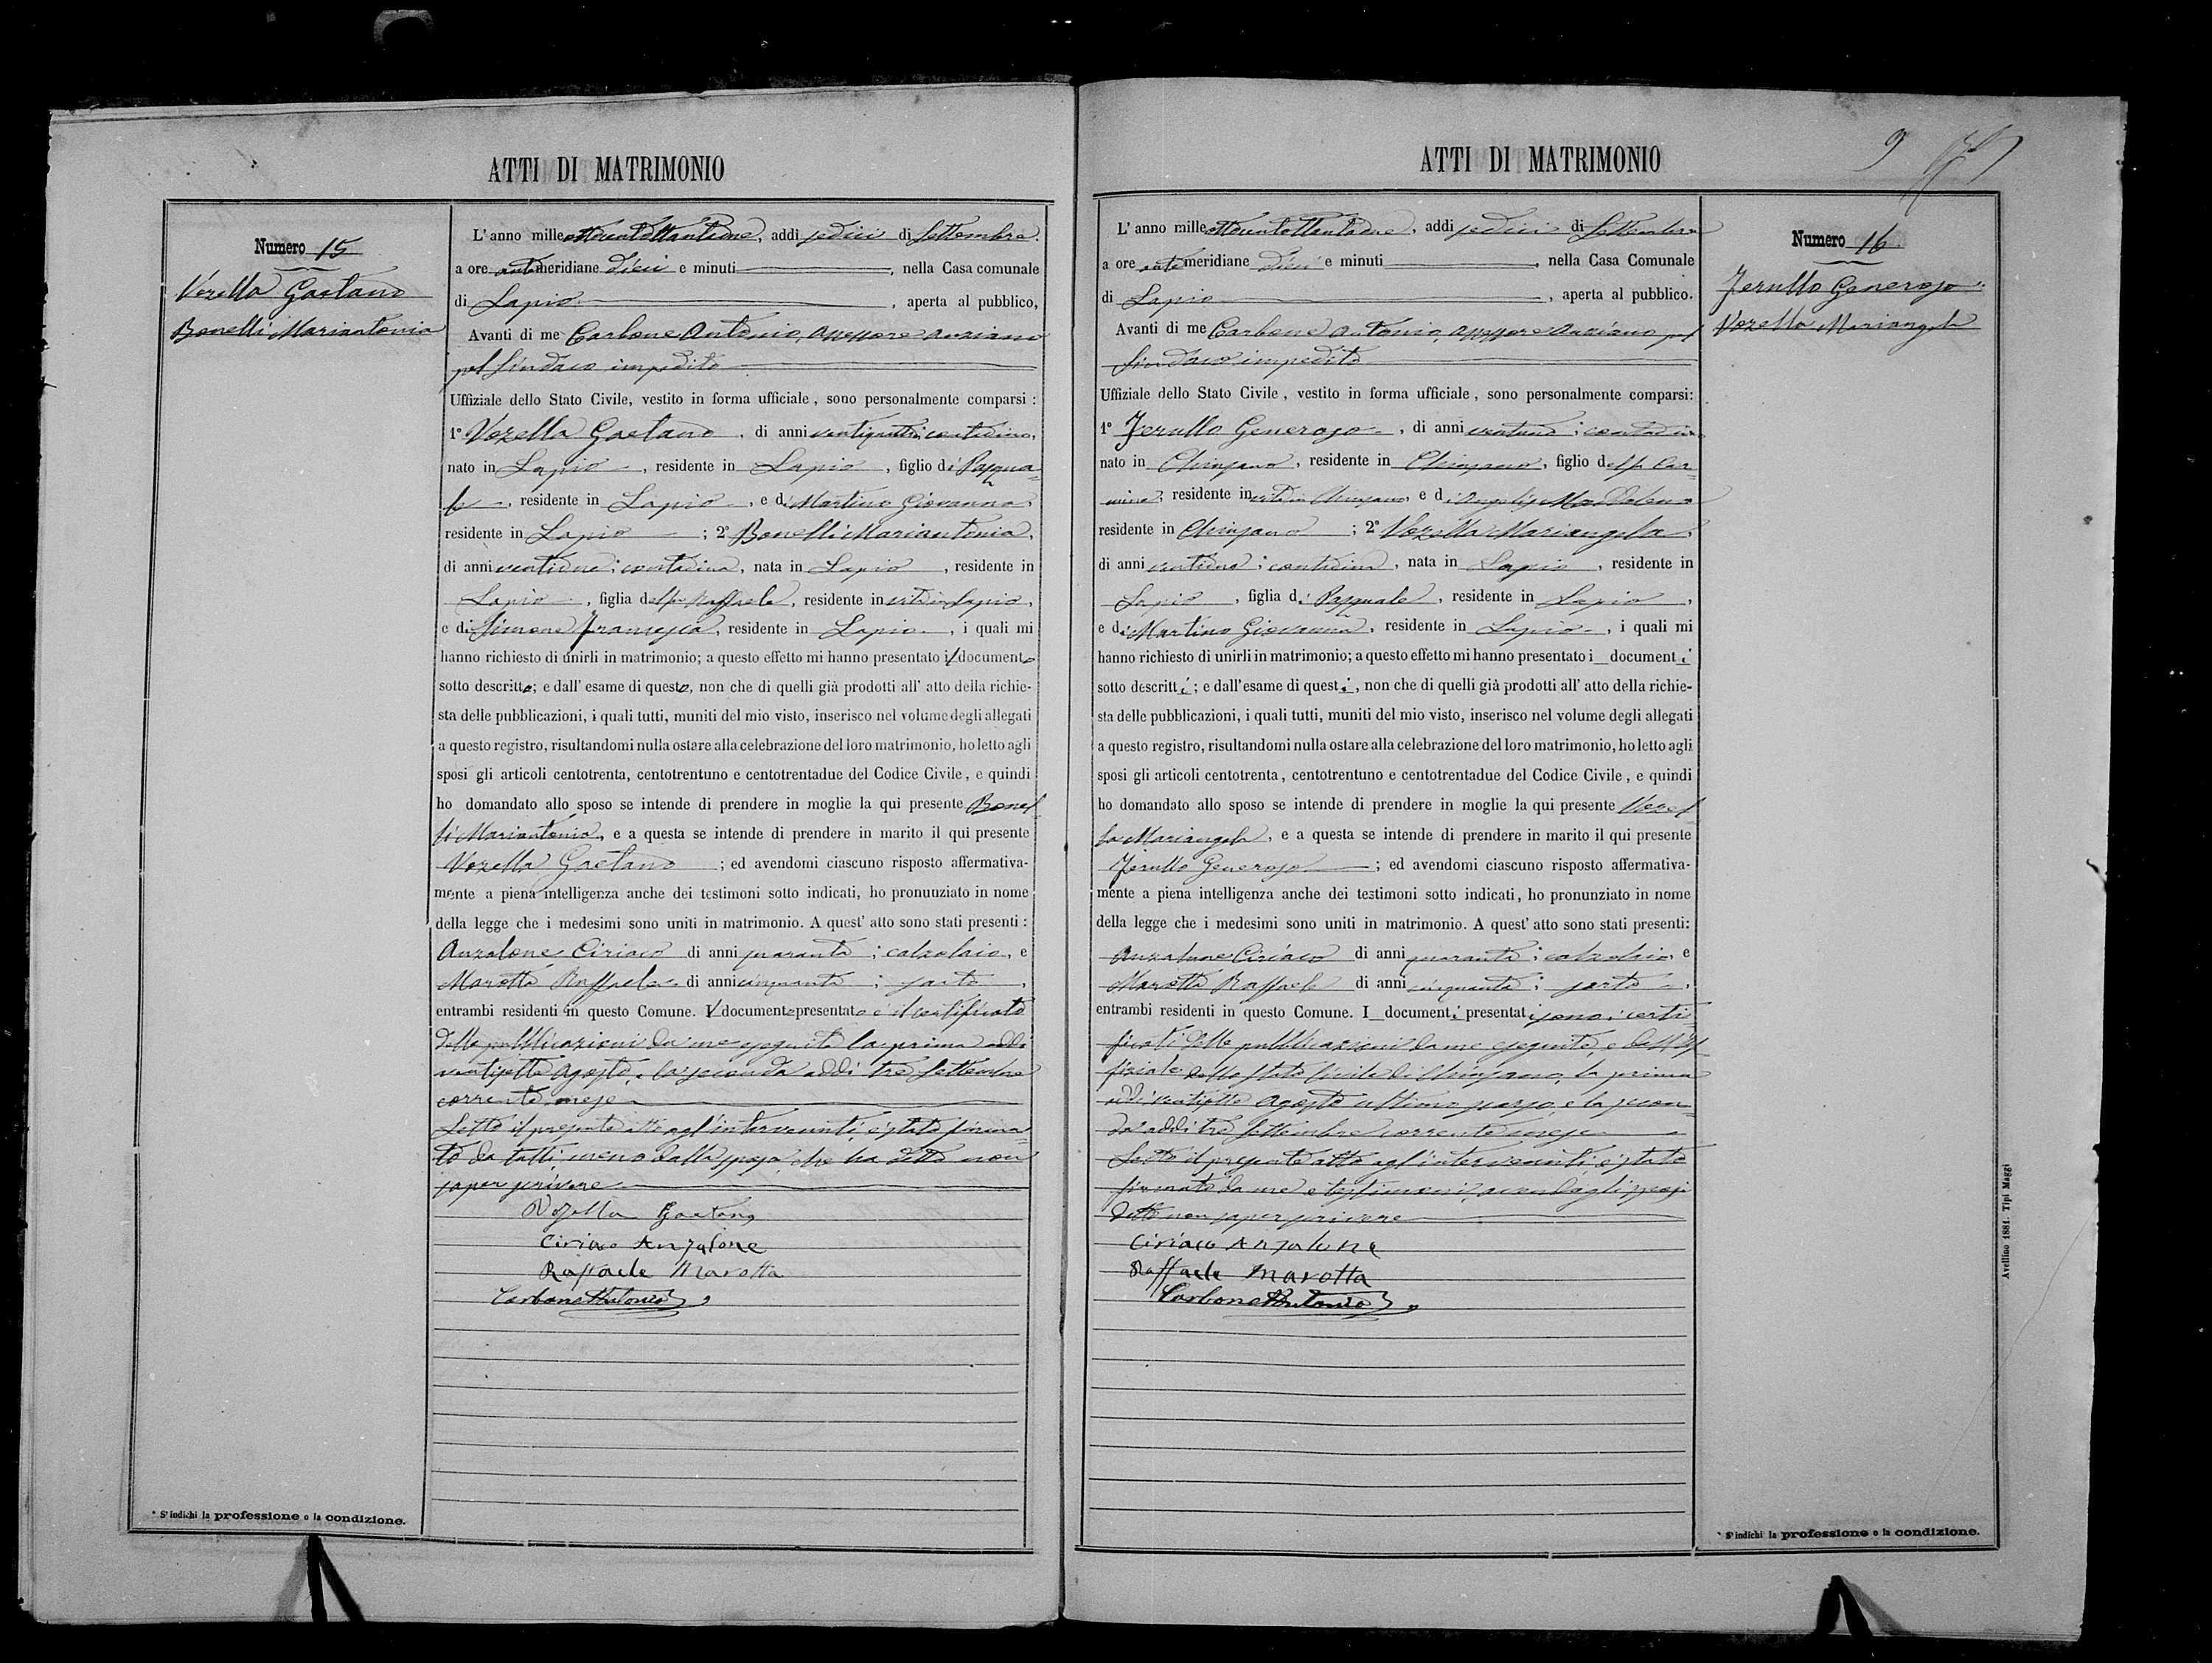 ATTI DI MATRIMONIO
Numero 15
Vozella Gaetano
Bonelli Mariantonia
L' anno mille ottocentottantadue, addi sedici di Settembre.
a ore antimeridiane dieci e minuti , nella Casa comunale
di Lapio , aperta al pubblico,
Avanti di me Carbone Antonio, Assessore anziano
pel Sindaco impedito
Uffiziale dello Stato Civile, vestito in forma ufficiale, sono personalmente comparsi :
1° Vozella Gaetano , di anni ventiquattro; contadino,
nato in Lapio , residente in Lapio , figlio di Pasqua=
le , residente in Lapio , e di Martino Giovanna,
residente in Lapio ; 2° Bonelli Mariantonia,
di anni ventidue; contadina, nata in Lapio , residente in
Lapio , figlia del fu Raffaele, residente in vita in Lapio,
e di Simone Francesca, residente in Lapio , i quali mi
hanno richiesto di unirli in matrimonio; a questo effetto mi hanno presentato il documento
sotto descritto; e dall' esame di questo, non che di quelli già prodotti all' atto della richie-
sta delle pubblicazioni, i quali tutti, muniti del mio visto, inserisco nel volume degli allegati
a questo registro, risultandomi nulla ostare alla celebrazione del loro matrimonio, ho letto agli
sposi gli articoli centotrenta, centotrentuno e centotrentadue del Codice Civile, e quindi
ho domandato allo sposo se intende di prendere in moglie la qui presente Bonel=
li Mariantonia, e a questa se intende di prendere in marito il qui presente
Vozella Gaetano ; ed avendomi ciascuno risposto affermativa-
mente a piena intelligenza anche dei testimoni sotto indicati, ho pronunziato in nome
della legge che i medesimi sono uniti in matrimonio. A quest' atto sono stati presenti :
Anzalone Ciriaco di anni quaranta ; calzolaio, e
Marotta Raffaele di anni cinquanta ; sarto ,
entrambi residenti in questo Comune. Il documento presentato è il certificato
delle pubblicazioni da me eseguite la prima addi
ventisette Agosto, e la seconda addi tre Settembre
corrente mese
Letto il presente atto agl'intervenuti, è stato firma=
to da tutti, meno dalla sposa, che ha detto non
saper scrivere
Vozella Gaetano
Ciriaco Anzalone
Raffaele Marotta
Carbone Antonio
* S' indichi la professione o la condizione.
ATTI DI MATRIMONIO
9
Numero 16
Jerullo Generoso
Vozella Mariangela
L' anno mille ottocentottantadue, addi sedici di Settembre
a ore antimeridiane dieci e minuti , nella Casa Comunale
di Lapio , aperta al pubblico.
Avanti di me Carbone Antonio, Assessore anziano pel
Sindaco impedito
Uffiziale dello Stato Civile, vestito in forma ufficiale, sono personalmente comparsi:
1° Jerullo Generoso , di anni ventuno ; contadino,
nato in Chiusano, residente in Chiusano, figlio del fu Car=
mine, residente in vita in Chiusano, e di Maddalena
residente in Chiusano ; 2° Vozella Mariangela,
di anni ventidue; contadina, nata in Lapio , residente in
Lapio , figlia di Pasquale, residente in Lapio ,
e di Martino Giovanna, residente in Lapio , i quali mi
hanno richiesto di unirli in matrimonio; a questo effetto mi hanno presentato i documenti
sotto descritti; e dall' esame di questi, non che di quelli già prodotti all' atto della richie-
sta delle pubblicazioni, i quali tutti, muniti del mio visto, inserisco nel volume degli allegati
a questo registro, risultandomi nulla ostare alla celebrazione del loro matrimonio, ho letto agli
sposi gli articoli centotrenta, centotrentuno e centotrentadue del Codice Civile, e quindi
ho domandato allo sposo se intende di prendere in moglie la qui presente Vozel=
la Mariangela, e a questa se intende di prendere in marito il qui presente
Jerullo Generoso ; ed avendomi ciascuno risposto affermativa-
mente a piena intelligenza anche dei testimoni sotto indicati, ho pronunziato in nome
della legge che i medesimi sono uniti in matrimonio. A quest' atto sono stati presenti:
Anzalone Ciriaco di anni quaranta ; calzolaio, e
Marotta Raffaele di anni cinquanta ; sarto ,
entrambi residenti in questo Comune. I documenti presentati sono i certi=
ficati delle pubblicazioni da me eseguite, e dall'Uf=
fiziale dello Stato Civile di Chiusano, la prima
addi ventisette Agosto ultimo scorso, e la secon=
da addi tre Settembre corrente mese
Letto il presente atto agl'intervenuti, è stato
firmato da me e testimoni, avendo gli sposi
detto non saper scrivere
Ciriaco Anzalone
Raffaele Marotta
Carbone Antonio
* S' indichi la professione o la condizione.
Avellino 1881. Tipi Maggi